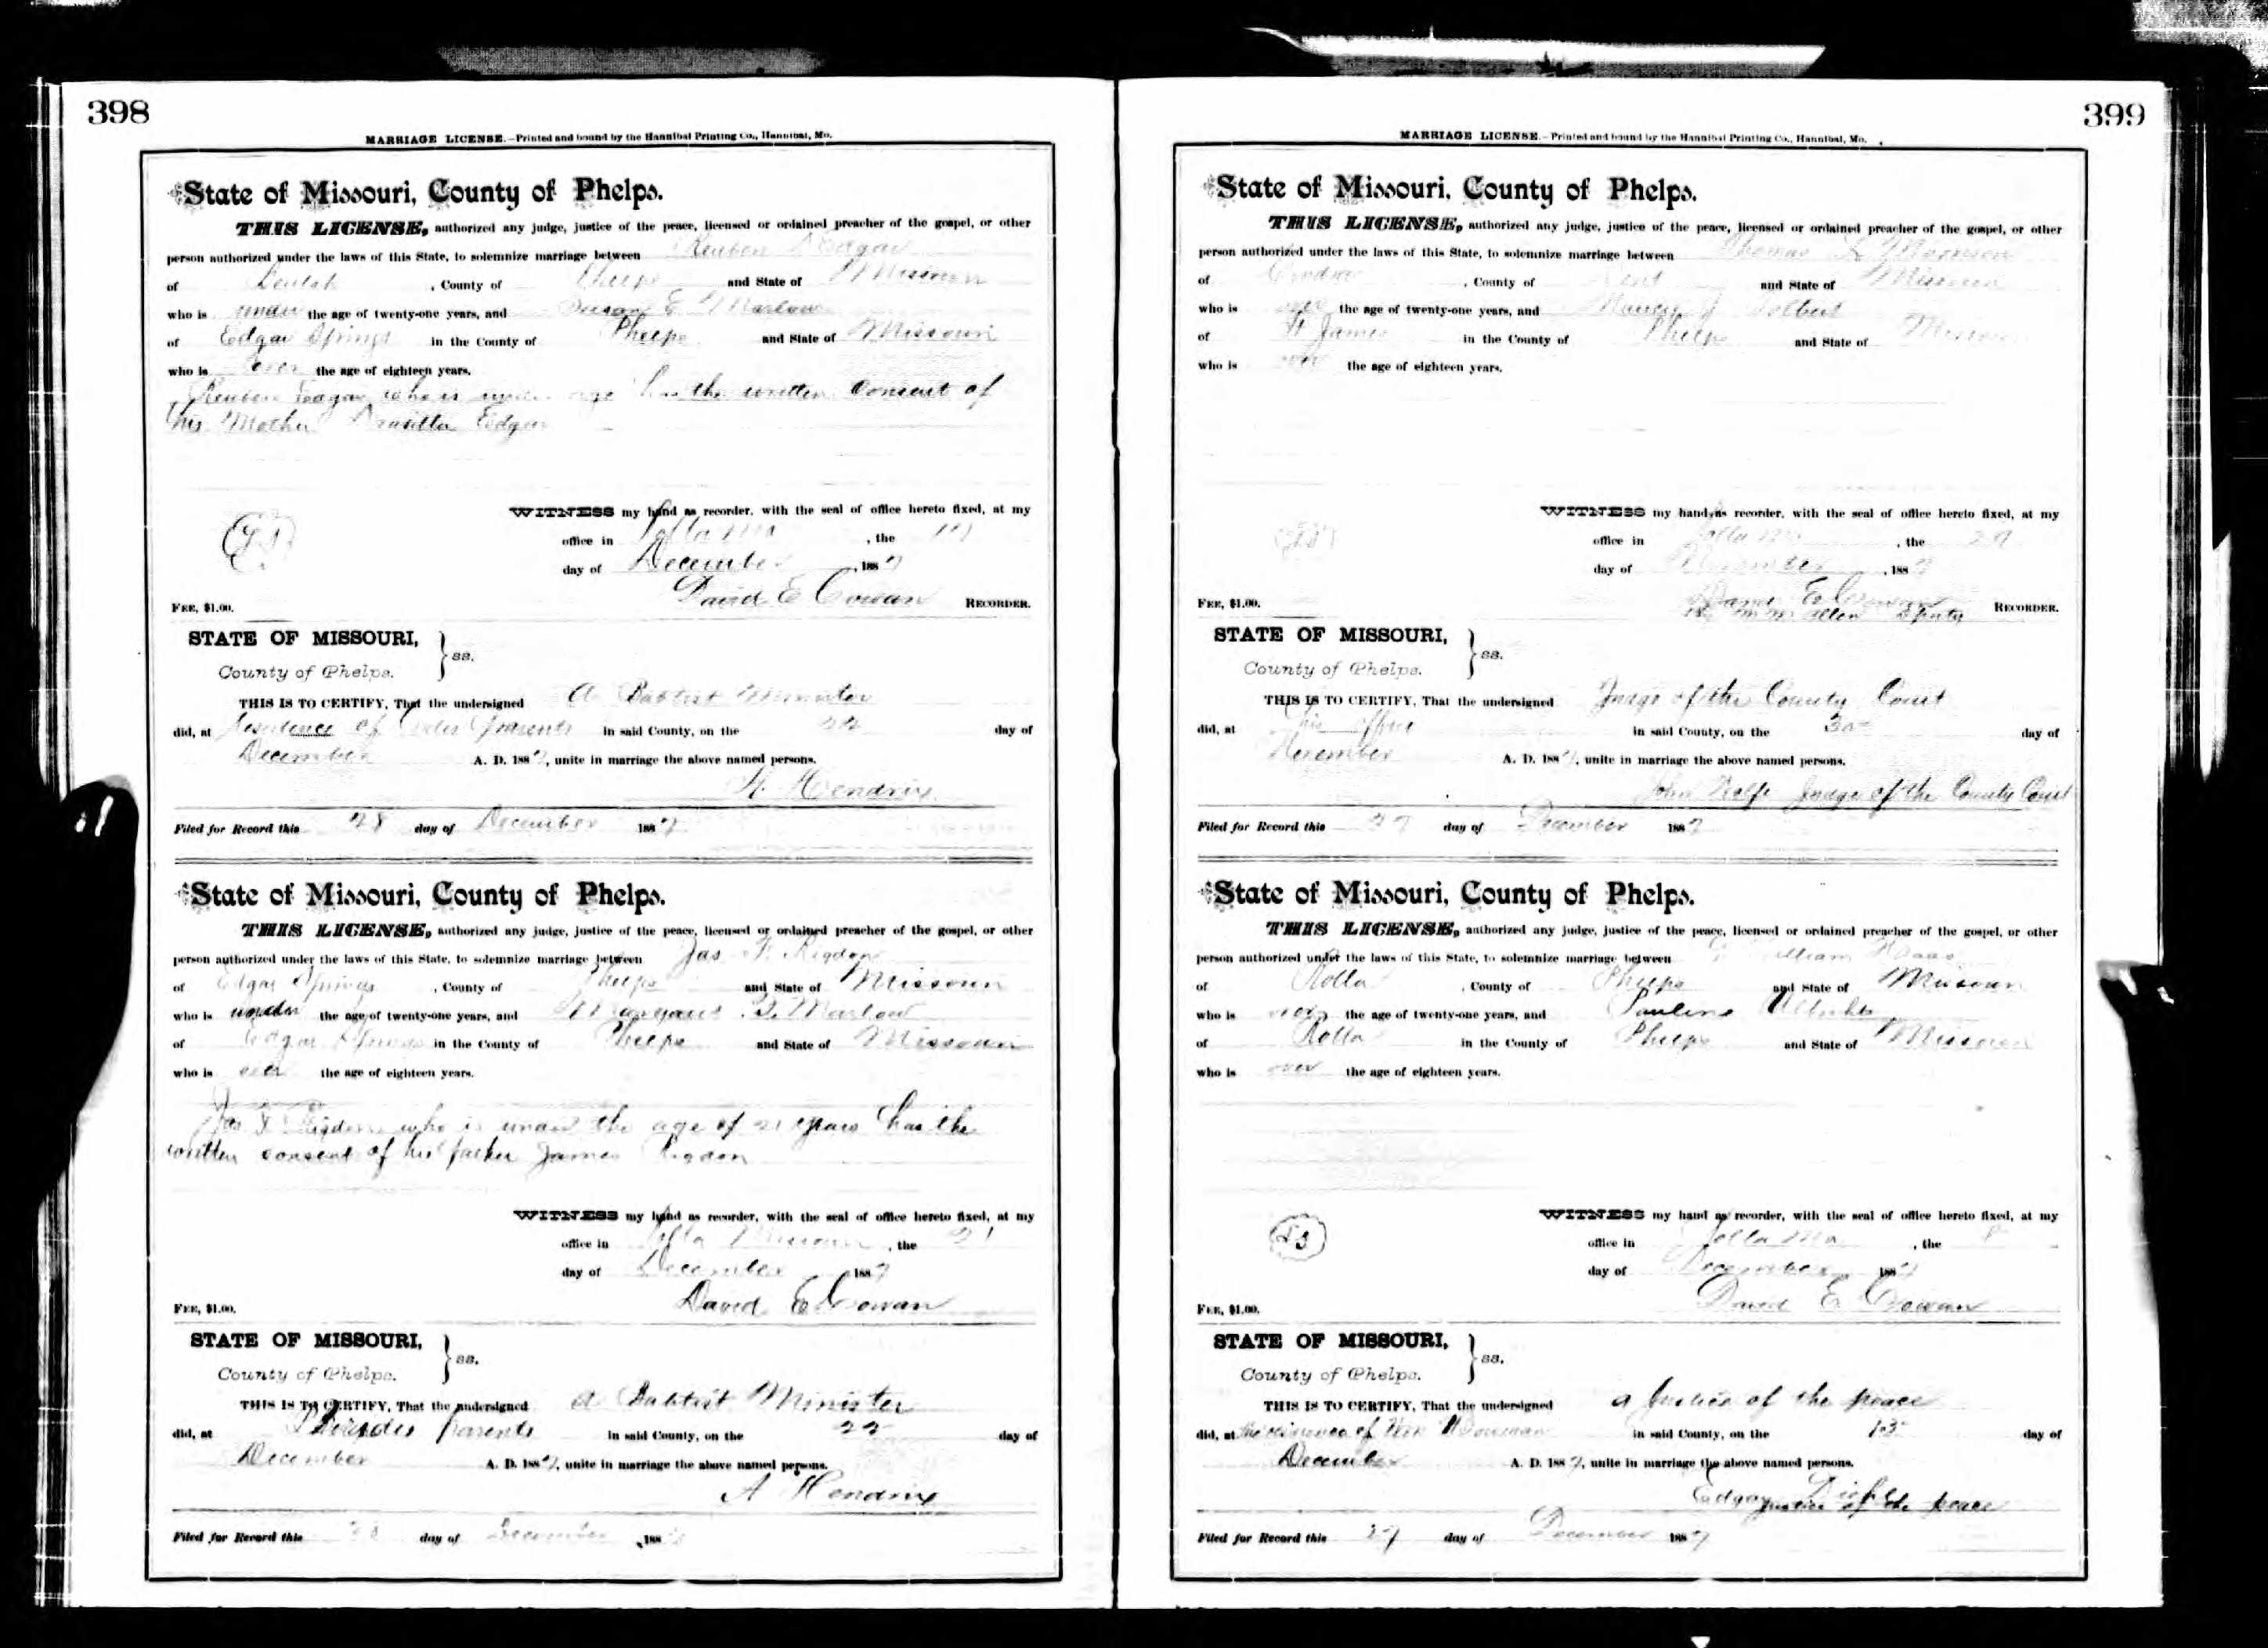 398
MARRIAGE LICENSE.—Printed and bound by the Hannibal Printing Co., Hannibal, Mo.
State of Missouri, County of Phelps.
THIS LICENSE, authorized any judge, justice of the peace, licensed or ordained preacher of the gospel, or other
person authorized under the laws of this State, to solemnize marriage between Reuben Edgar
of Beulah, County of Phelps and State of Missouri
who is under the age of twenty-one years, and Susan E Marlow
of Edgar Springs in the County of Phelps and State of Missouri
who is over the age of eighteen years.
Reuben Edgar who is under age has the written consent of
his Mother Edgar
WITNESS my hand as recorder, with the seal of office hereto fixed, at my
office in Rolla Mo, the
day of December, 1887
David E Cowan RECORDER.
FEE, $1.00.
STATE OF MISSOURI,
County of Phelps. } ss.
THIS IS TO CERTIFY, That the undersigned A Babtist Minister
did, at Residence of parents in said County, on the 22 day of
December A. D. 1887, unite in marriage the above named persons.
A. Hendrix
Filed for Record this 28 day of December 1887
State of Missouri, County of Phelps.
THIS LICENSE, authorized any judge, justice of the peace, licensed or ordained preacher of the gospel, or other
person authorized under the laws of this State, to solemnize marriage between Jas F. Rigdon
of Edgar Springs, County of Phelps and State of Missouri
who is under the age of twenty-one years, and Marlow
of Edgar Springs in the County of Phelps and State of Missouri
who is over the age of eighteen years.
Jas F Rigdon who is under the age of 21 years has the
written consent of his father James Rigdon
WITNESS my hand as recorder, with the seal of office hereto fixed, at my
office in Rolla Missouri, the 21
day of December 1887
David E Cowan
FEE, $1.00.
STATE OF MISSOURI,
County of Phelps. } ss.
THIS IS TO CERTIFY, That the undersigned A Babtist Minister
did, at parents in said County, on the 22 day of
December A. D. 1887, unite in marriage the above named persons.
A Hendrix
Filed for Record this 28 day of December, 188
399
MARRIAGE LICENSE.—Printed and bound by the Hannibal Printing Co., Hannibal, Mo.
State of Missouri, County of Phelps.
THIS LICENSE, authorized any judge, justice of the peace, licensed or ordained preacher of the gospel, or other
person authorized under the laws of this State, to solemnize marriage between Thomas
of, County of Dent and State of Missouri
who is over the age of twenty-one years, and Nancy J Tolbert
of St James in the County of Phelps and State of Missouri
who is over the age of eighteen years.
WITNESS my hand as recorder, with the seal of office hereto fixed, at my
office in Rolla Mo, the 29
day of November, 1887
David E Cowan RECORDER.
Allen Deputy
FEE, $1.00.
STATE OF MISSOURI,
County of Phelps. } ss.
THIS IS TO CERTIFY, That the undersigned Judge of the County Court
did, at his office in said County, on the 30 day of
November A. D. 1887, unite in marriage the above named persons.
John Judge of the County Court
Filed for Record this 27 day of December 1887
State of Missouri, County of Phelps.
THIS LICENSE, authorized any judge, justice of the peace, licensed or ordained preacher of the gospel, or other
person authorized under the laws of this State, to solemnize marriage between William Haas
of Rolla, County of Phelps and State of Missouri
who is over the age of twenty-one years, and Pauline
of Rolla in the County of Phelps and State of Missouri
who is over the age of eighteen years.
WITNESS my hand as recorder, with the seal of office hereto fixed, at my
office in Rolla Mo, the
day of December 1887
David E Cowan
FEE, $1.00.
STATE OF MISSOURI,
County of Phelps. } ss.
THIS IS TO CERTIFY, That the undersigned a Justice of the peace
did, at the residence of Wm Bowman in said County, on the day of
December A. D. 1887, unite in marriage the above named persons.
Edgar
Justice of the peace
Filed for Record this 27 day of December 1887